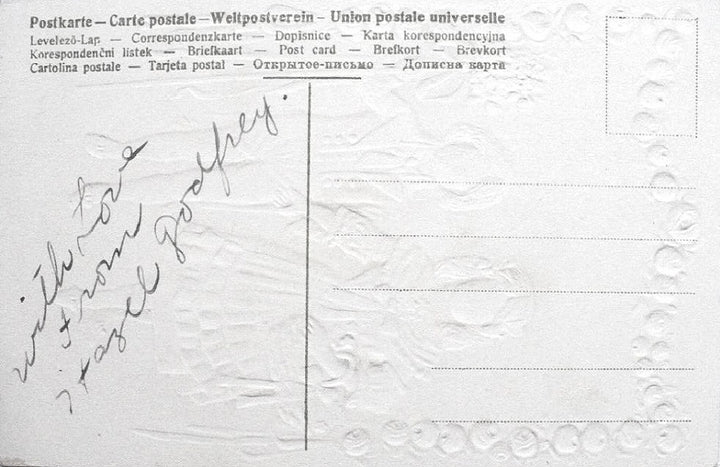 Postkarte — Carte postale — Weltpostverein - Union postale universelle
Levelező-Lap — Correspondenzkarte — Dopisnice — Karta korespondencyjna
Korespondenční lístek — Briefkaart — Post card — Brefkort — Brevkort
Cartolina postale — Tarjeta postal — Открытое-письмо — Дописна карта
with Love
from
Hazel Godfrey.